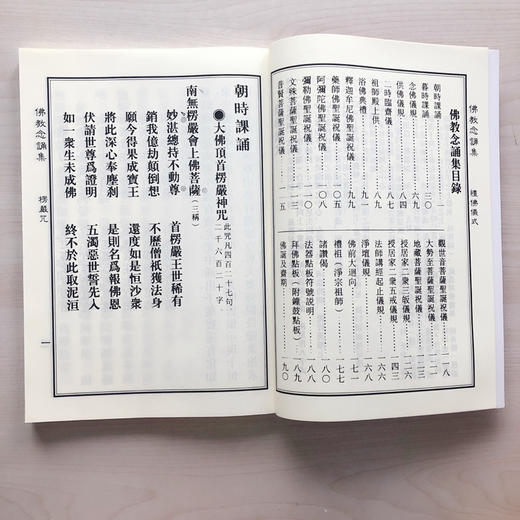 佛教念誦集
禮佛儀式
佛教念誦集目錄
朝時課誦
暮時課誦……三〇
念佛儀規
供佛儀規……八四
二時臨齋儀……八七
祖師殿上供
浴佛典禮……九一
釋迦牟尼佛聖誕祝儀……九九
藥師佛聖誕祝儀……一〇五
阿彌陀佛聖誕祝儀……一〇八
彌勒佛聖誕祝儀
文殊菩薩聖誕祝儀
普賢菩薩聖誕祝儀……一一五
觀世音菩薩聖誕祝儀……一一八
大勢至菩薩聖誕祝儀
地藏菩薩聖誕祝儀
授居家二眾三皈儀規……一二六
授居家二眾五戒儀規……一四三
法師講經起止儀規
淨壇儀規……一六八
佛前大迴向……一七七
禮祖(淨宗祖師)……一七七
諸讚偈……一八〇
法器點板符號說明……一八八
拜佛點板(附鐘鼓點板)……一八九
佛誕及齋期……一九〇
朝時課誦
●大佛頂首楞嚴神咒
此咒凡四百二十七句
二千六百二十字
南無楞嚴會上佛菩薩(三稱)
妙湛總持不動尊 首楞嚴王世稀有
銷我億劫顛倒想 不歷僧祇獲法身
願今得果成寶王 還度如是恒沙眾
將此深心奉塵剎 是則名為報佛恩
伏請世尊為證明 五濁惡世誓先入
如一眾生未成佛 終不於此取泥洹
佛教念誦集
楞嚴咒
一